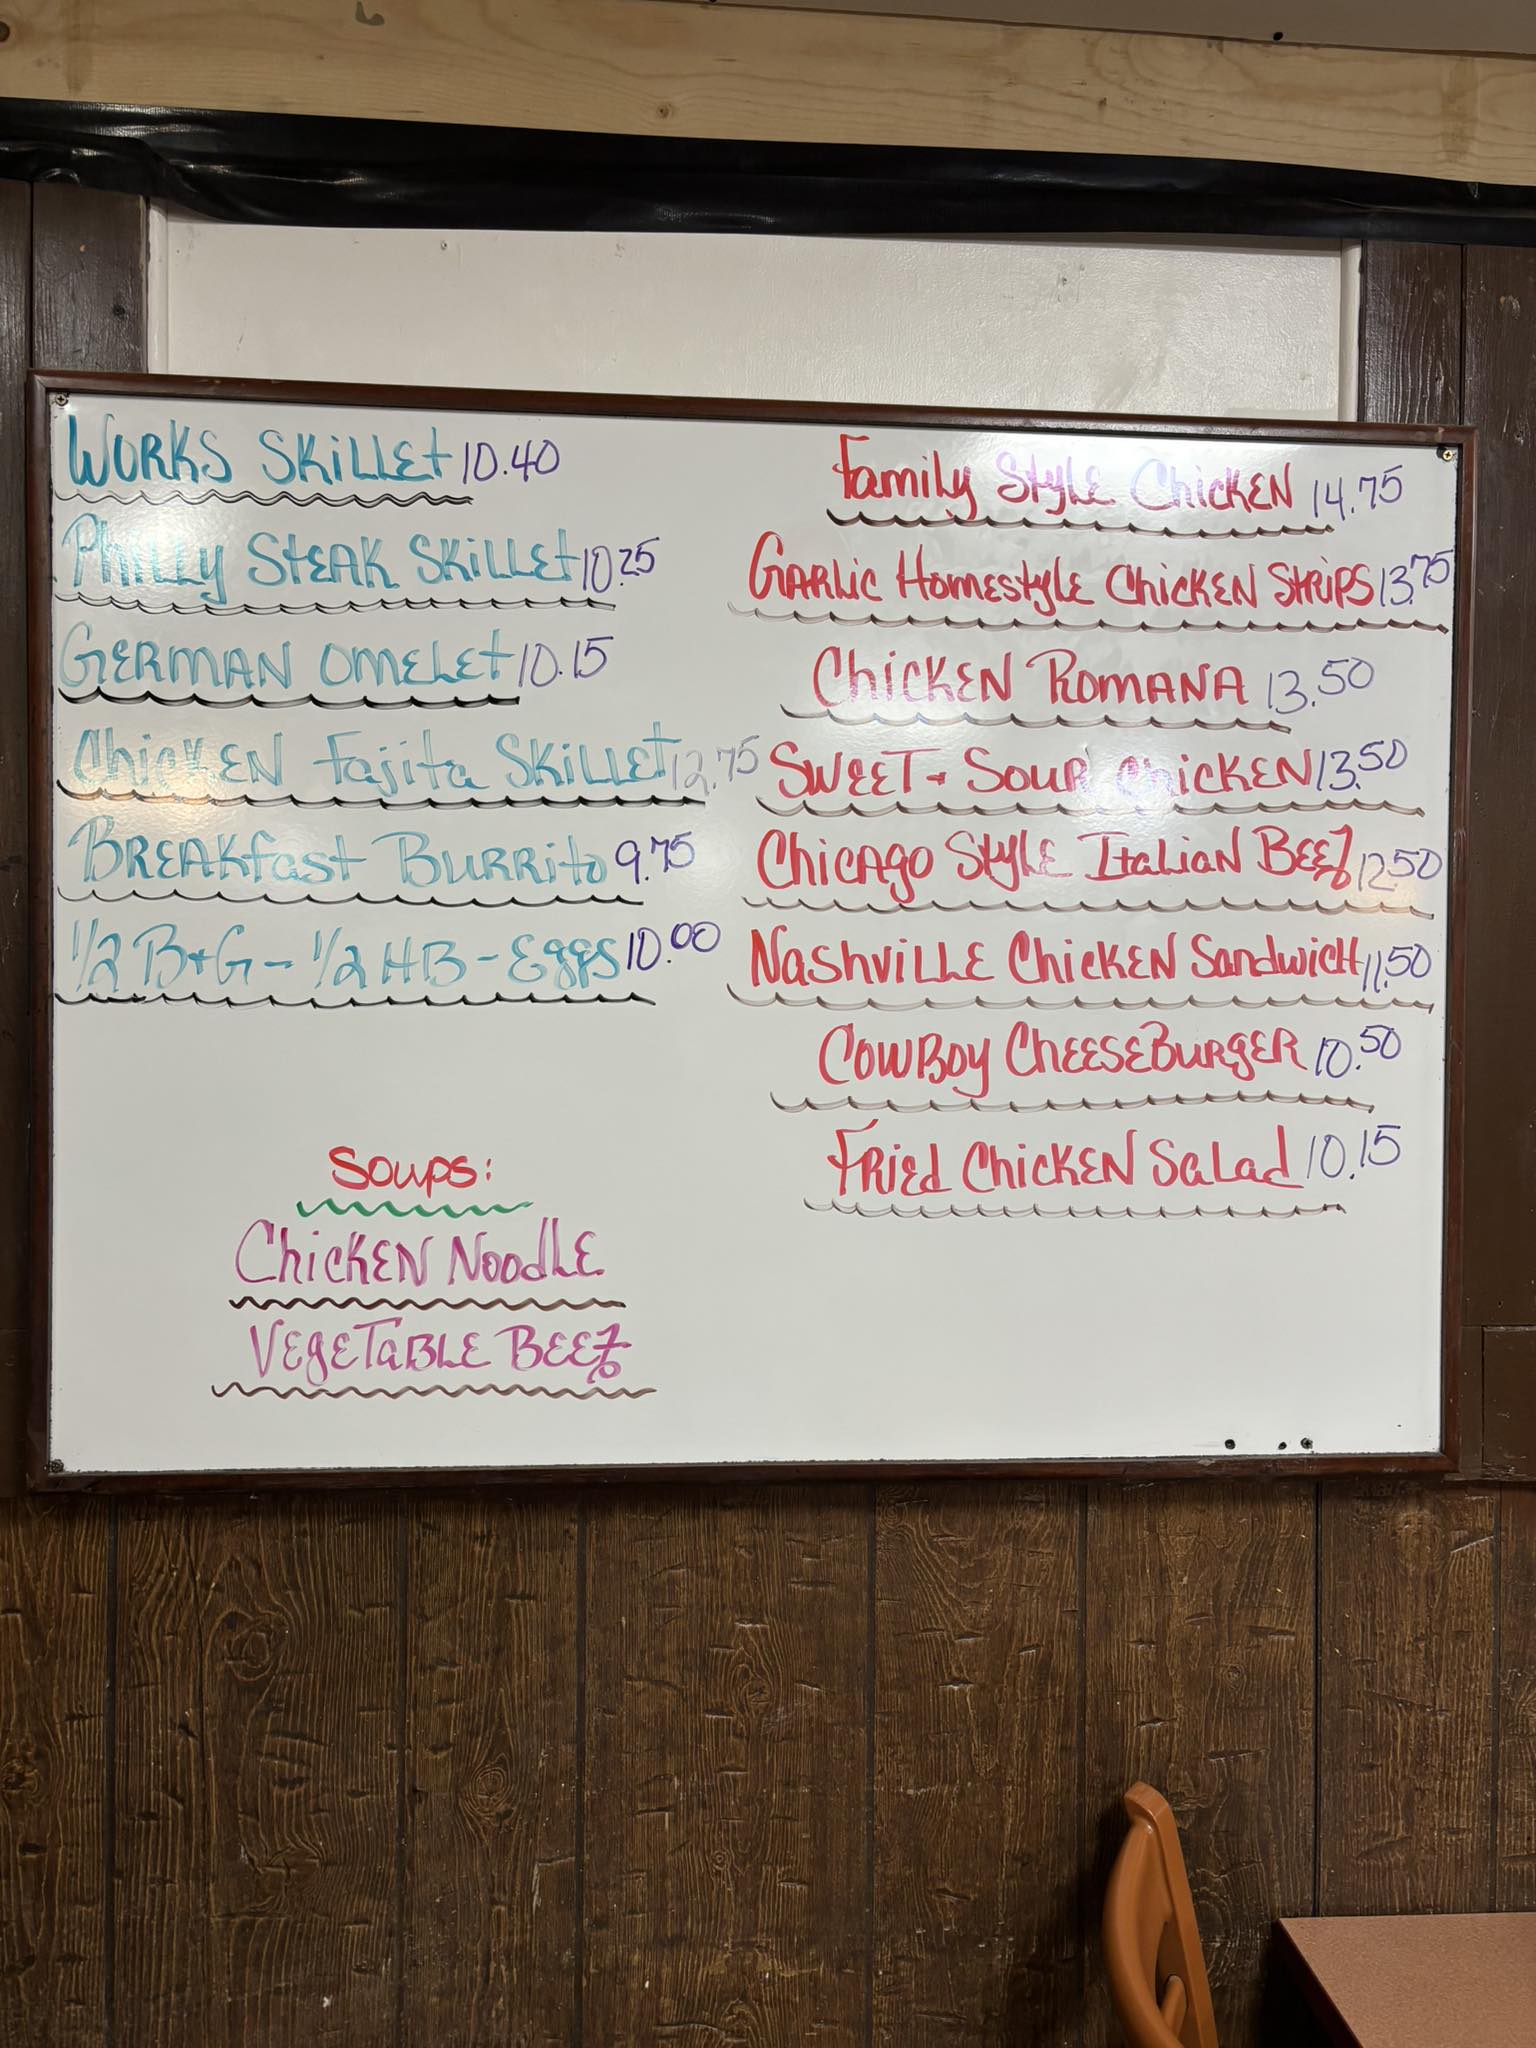 Works Skillet 10.40
Philly Steak Skillet 10.25
German Omelet 10.15
Chicken Fajita Skillet 12.75
Breakfast Burrito 9.75
1/2 B+G - 1/2 HB - Eggs 10.00
Soups:
Chicken Noodle
Vegetable Beef
Family Style Chicken 14.75
Garlic Homestyle Chicken Strips 13.75
Chicken Romana 13.50
Sweet + Sour Chicken 13.50
Chicago Style Italian Beef 12.50
Nashville Chicken Sandwich 11.50
Cowboy Cheeseburger 10.50
Fried Chicken Salad 10.15